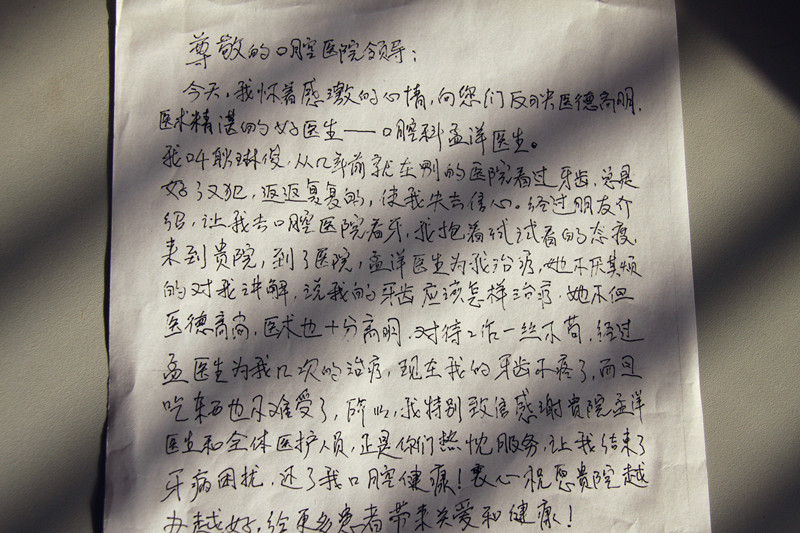 尊敬的口腔医院领导：
今天，我怀着感激的心情，向您们反映医德高明，
医术精湛的好医生——口腔科孟洋医生。
我叫耿琳俊，从几年前就在别的医院看过牙齿，总是
好了又犯，返返复复的，使我失去信心。经过朋友介
绍，让我去口腔医院看牙，我抱着试试看的态度，
来到贵院，到了医院，孟洋医生为我治疗，她不厌其烦
的对我讲解，说我的牙齿应该怎样治疗，她不但
医德高尚，医术也十分高明，对待工作一丝不苟，经过
孟医生为我几次的治疗，现在我的牙齿不疼了，而且
吃东西也不难受了，所以，我特别致信感谢贵院孟洋
医生和全体医护人员，正是你们热忱服务，让我结束了
牙病困扰，还了我口腔健康！衷心祝愿贵院越
办越好，给更多患者带来关爱和健康！